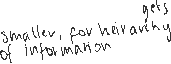 gets
smaller, for heirarchy
of information